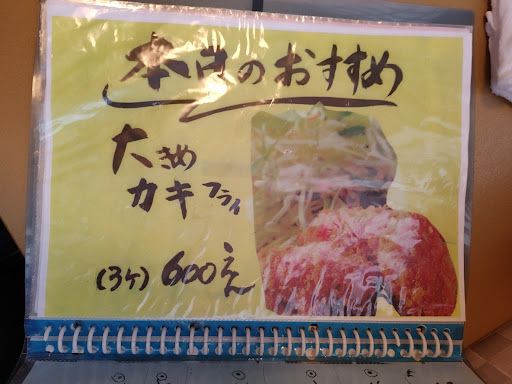 本日のおすすめ
大きめ
カキフライ
(3ケ) 600えん